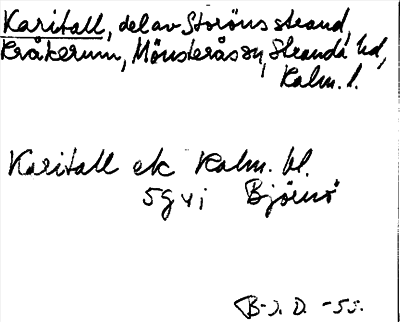 Karitall, del av Storöns strand,
Kråkerum, Mönsterås sn, Stranda hd,
Kalm. l.
Karitall ek Kalm. bl.
5g vi Björnö
B-J. D. -55.